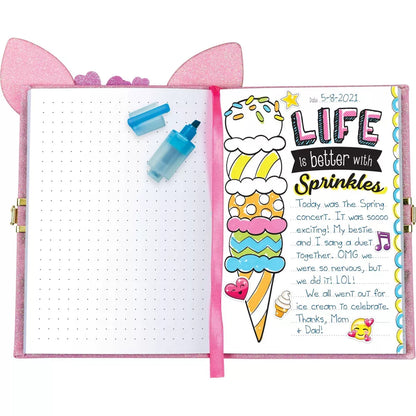 Date: 5-8-2021
LIFE
is better with
Sprinkles
Today was the Spring
concert. It was soooo
exciting! My bestie
and I sang a duet
together. OMG we
were so nervous, but
we did it! LOL!
We all went out for
ice cream to celebrate.
Thanks, Mom
& Dad!